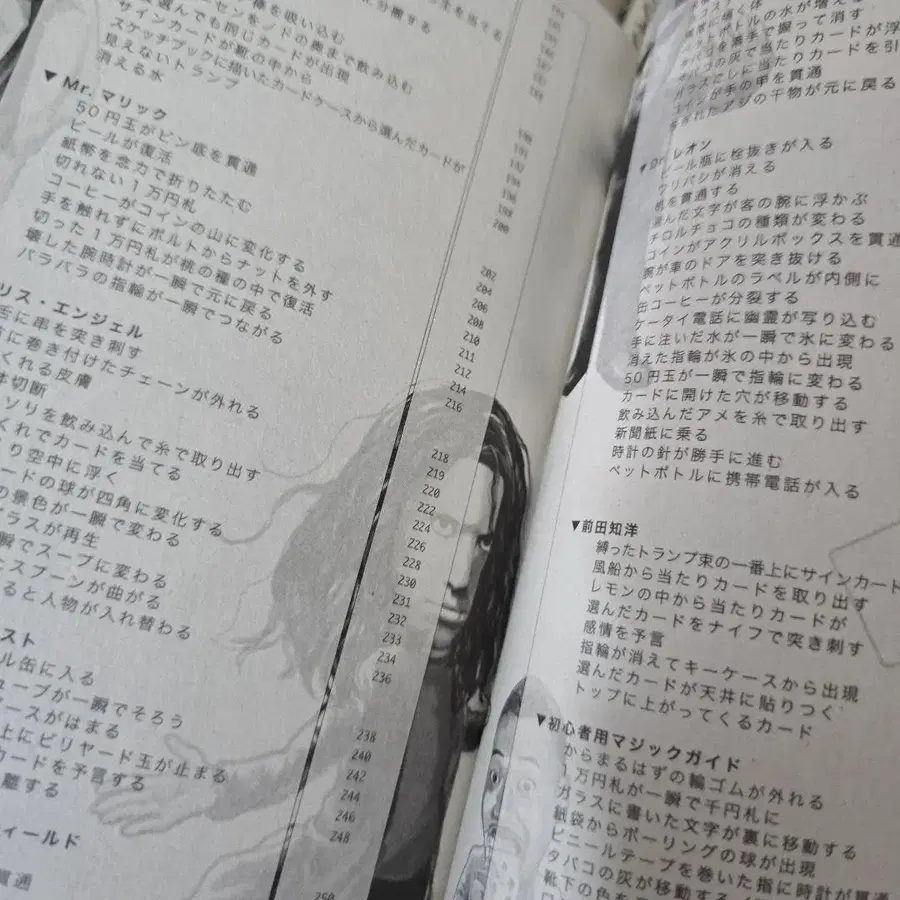 生も当てる
分離する
棒を吸い込む
センをノドの奥まで飲み込む
選んでも同じカードが出現
サインカードが靴の中から
スケッチブックに描いたカードケースから選んだカードが
見えないトランプ
消える水
190
192
194
196
198
200
▼Mr. マリック
50円玉がビン底を貫通
ビールが復活
紙幣を念力で折りたたむ
切れない1万円札
コーヒーがコインの山に変化する
手を触れずにボルトからナットを外す
切った1万円札が桃の種の中で復活
壊した腕時計が一瞬で元に戻る
バラバラの指輪が一瞬でつながる
202
204
206
208
210
211
212
214
216
リス・エンジェル
舌に串を突き刺す
に巻き付けたチェーンが外れる
くれる皮膚
体切断
ソリを飲み込んで糸で取り出す
くれでカードを当てる
り空中に浮く
ードの球が四角に変化する
の景色が一瞬で変わる
グラスが再生
瞬でスープに変わる
スプーンが曲がる
ると人物が入れ替わる
218
219
220
222
224
226
228
230
231
232
233
234
236
スト
ル缶に入る
ューブが一瞬でそろう
ースがはまる
上にビリヤード玉が止まる
カードを予言する
離する
238
240
242
244
246
248
ィールド
貫通
250
ットボトルの水が増える
タバコを素手で握って消す
タバコの灰で当たりカードが浮
ガラスごしに当たりカードを引
コインが手の甲を貫通
されたアジの干物が元に戻る
▼Dr. レオン
ビール瓶に栓抜きが入る
ワリバシが消える
机を貫通する
選んだ文字が客の腕に浮かぶ
チロルチョコの種類が変わる
コインがアクリルボックスを貫通
腕が車のドアを突き抜ける
ペットボトルのラベルが内側に
缶コーヒーが分裂する
ケータイ電話に幽霊が写り込む
手に注いだ水が一瞬で氷に変わる
消えた指輪が氷の中から出現
50円玉が一瞬で指輪に変わる
カードに開けた穴が移動する
飲み込んだアメを糸で取り出す
新聞紙に乗る
時計の針が勝手に進む
ペットボトルに携帯電話が入る
▼前田知洋
縛ったトランプ束の一番上にサインカード
風船から当たりカードを取り出す
レモンの中から当たりカードが
選んだカードをナイフで突き刺す
感情を予言
指輪が消えてキーケースから出現
選んだカードが天井に貼りつく
トップに上がってくるカード
▼初心者用マジックガイド
からまるはずの輪ゴムが外れる
1万円札が一瞬で千円札に
ガラスに書いた文字が裏に移動する
紙袋からボーリングの球が出現
ビニールテープを巻いた指に時計が貫通
タバコの灰が移動する
靴下の色を